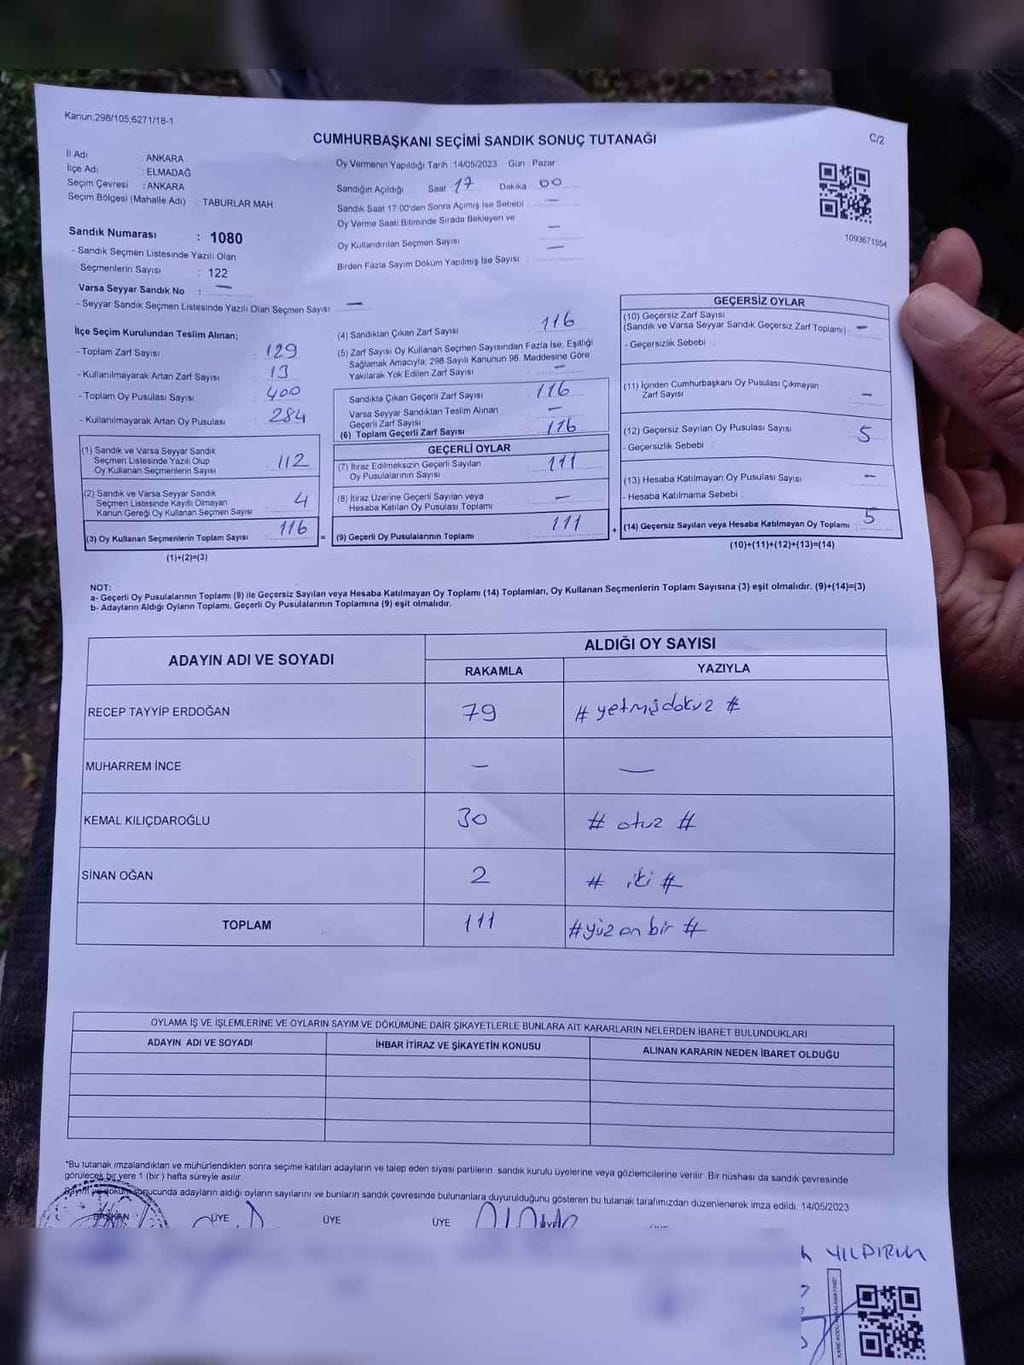 Kanun;298/105;6271/18-1
CUMHURBAŞKANI SEÇİMİ SANDIK SONUÇ TUTANAĞI
C/2
İl Adı : ANKARA
İlçe Adı : ELMADAĞ
Seçim Çevresi : ANKARA
Seçim Bölgesi (Mahalle Adı) : TABURLAR MAH.
Sandık Numarası : 1080
- Sandık Seçmen Listesinde Yazılı Olan
Seçmenlerin Sayısı : 122
Varsa Seyyar Sandık No : —
- Seyyar Sandık Seçmen Listesinde Yazılı Olan Seçmen Sayısı : —
Oy Vermenin Yapıldığı Tarih : 14/05/2023 Gün : Pazar
Sandığın Açıldığı Saat 17 Dakika 00
Sandık Saat 17.00'den Sonra Açılmış İse Sebebi : —
Oy Verme Saati Bitiminde Sırada Bekleyen ve
Oy Kullandırılan Seçmen Sayısı : —
Birden Fazla Sayım Döküm Yapılmış İse Sayısı : —
1093671554
İlçe Seçim Kurulundan Teslim Alınan;
- Toplam Zarf Sayısı : 129
- Kullanılmayarak Artan Zarf Sayısı : 13
- Toplam Oy Pusulası Sayısı : 400
- Kullanılmayarak Artan Oy Pusulası : 284
(1) Sandık ve Varsa Seyyar Sandık
Seçmen Listesinde Yazılı Olup
Oy Kullanan Seçmenlerin Sayısı : 112
(2) Sandık ve Varsa Seyyar Sandık
Seçmen Listesinde Kayıtlı Olmayan
Kanun Gereği Oy Kullanan Seçmen Sayısı : 4
(3) Oy Kullanan Seçmenlerin Toplam Sayısı : 116 =
(1)+(2)=(3)
(4) Sandıktan Çıkan Zarf Sayısı : 116
(5) Zarf Sayısı Oy Kullanan Seçmen Sayısından Fazla İse, Eşitliği
Sağlamak Amacıyla, 298 Sayılı Kanunun 98. Maddesine Göre
Yakılarak Yok Edilen Zarf Sayısı : —
Sandıkta Çıkan Geçerli Zarf Sayısı : 116
Varsa Seyyar Sandıktan Teslim Alınan
Geçerli Zarf Sayısı : —
(6) Toplam Geçerli Zarf Sayısı : 116
GEÇERLİ OYLAR
(7) İtiraz Edilmeksizin Geçerli Sayılan
Oy Pusulalarının Sayısı : 111
(8) İtiraz Üzerine Geçerli Sayılan veya
Hesaba Katılan Oy Pusulası Toplamı : —
(9) Geçerli Oy Pusulalarının Toplamı : 111 +
GEÇERSİZ OYLAR
(10) Geçersiz Zarf Sayısı
(Sandık ve Varsa Seyyar Sandık Geçersiz Zarf Toplamı) : —
- Geçersizlik Sebebi :
(11) İçinden Cumhurbaşkanı Oy Pusulası Çıkmayan
Zarf Sayısı : —
(12) Geçersiz Sayılan Oy Pusulası Sayısı : 5
- Geçersizlik Sebebi :
(13) Hesaba Katılmayan Oy Pusulası Sayısı : —
- Hesaba Katılmama Sebebi :
(14) Geçersiz Sayılan veya Hesaba Katılmayan Oy Toplamı : 5
(10)+(11)+(12)+(13)=(14)
NOT:
a- Geçerli Oy Pusulalarının Toplamı (9) ile Geçersiz Sayılan veya Hesaba Katılmayan Oy Toplamı (14) Toplamları, Oy Kullanan Seçmenlerin Toplam Sayısına (3) eşit olmalıdır. (9)+(14)=(3)
b- Adayların Aldığı Oyların Toplamı, Geçerli Oy Pusulalarının Toplamına (9) eşit olmalıdır.
ADAYIN ADI VE SOYADI
ALDIĞI OY SAYISI
RAKAMLA YAZIYLA
RECEP TAYYİP ERDOĞAN 79 # yetmişdokuz #
MUHARREM İNCE — —
KEMAL KILIÇDAROĞLU 30 # otuz #
SİNAN OĞAN 2 # iki #
TOPLAM 111 #yüz on bir #
OYLAMA İŞ VE İŞLEMLERİNE VE OYLARIN SAYIM VE DÖKÜMÜNE DAİR ŞİKAYETLERLE BUNLARA AİT KARARLARIN NELERDEN İBARET BULUNDUKLARI
ADAYIN ADI VE SOYADI İHBAR İTİRAZ VE ŞİKAYETİN KONUSU ALINAN KARARIN NEDEN İBARET OLDUĞU
*Bu tutanak imzalandıktan ve mühürlendikten sonra seçime katılan adayların ve talep eden siyasi partilerin sandık kurulu üyelerine veya gözlemcilerine verilir. Bir nüshası da sandık çevresinde
görülecek bir yere 1 (bir ) hafta süreyle asılır.
Sayım ve döküm sonucunda adayların aldığı oyların sayılarını ve bunların sandık çevresinde bulunanlara duyurulduğunu gösteren bu tutanak tarafımızdan düzenlenerek imza edildi. 14/05/2023
BAŞKAN ÜYE ÜYE ÜYE
YILDIRIM